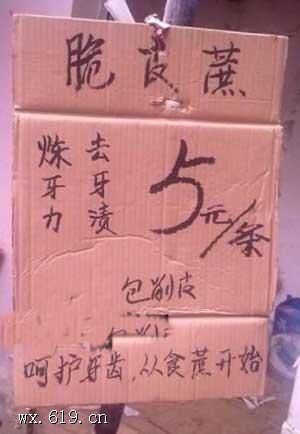 脆皮蔗
去牙渍
炼牙力
5元/条
包削皮
包削皮
呵护牙齿,从食蔗开始
wx.619.cn